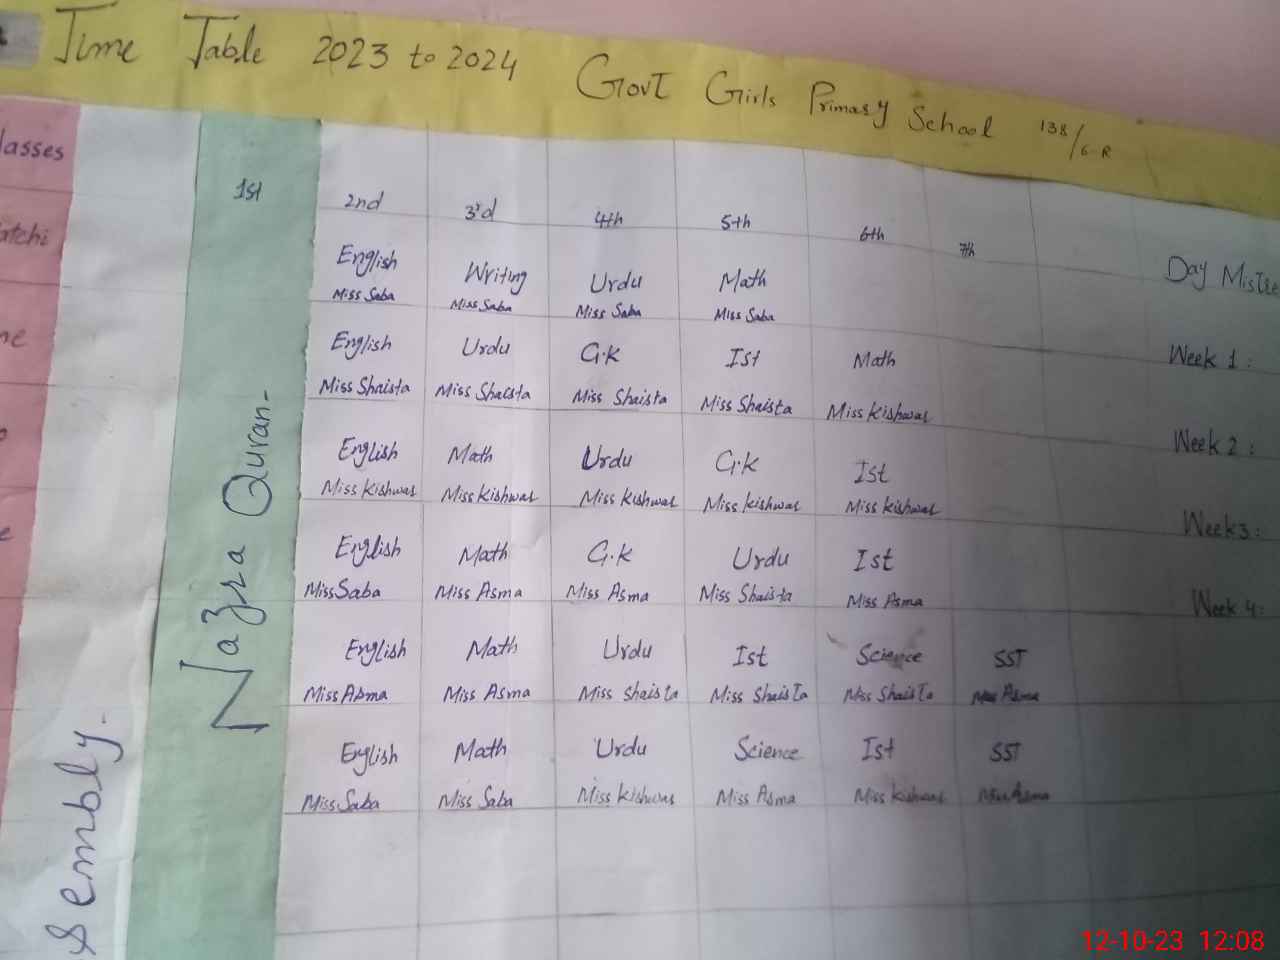 Time Table 2023 to 2024 Govt Girls Primary School 138/6-R
1st 2nd 3rd 4th 5th 6th 7th
English Writing Urdu Math
Miss Saba Miss Saba Miss Saba Miss Saba
Day
English Urdu G.K Ist Math
Miss Shaista Miss Shaista Miss Shaista Miss Shaista Miss Kishwar
Week 1:
English Math Urdu G.K Ist
Miss Kishwar Miss Kishwar Miss Kishwar Miss Kishwar Miss Kishwar
Week 2:
English Math G.K Urdu Ist
Miss Saba Miss Asma Miss Asma Miss Shaista Miss Asma
Week 3:
English Math Urdu Ist Science SST
Miss Asma Miss Asma Miss Shaista Miss Shaista Miss Shaista Miss Asma
Week 4:
English Math Urdu Science Ist SST
Miss Saba Miss Saba Miss Kishwar Miss Asma Miss Kishwar Miss Asma
Nazra Quran-
sembly.
12-10-23 12:08